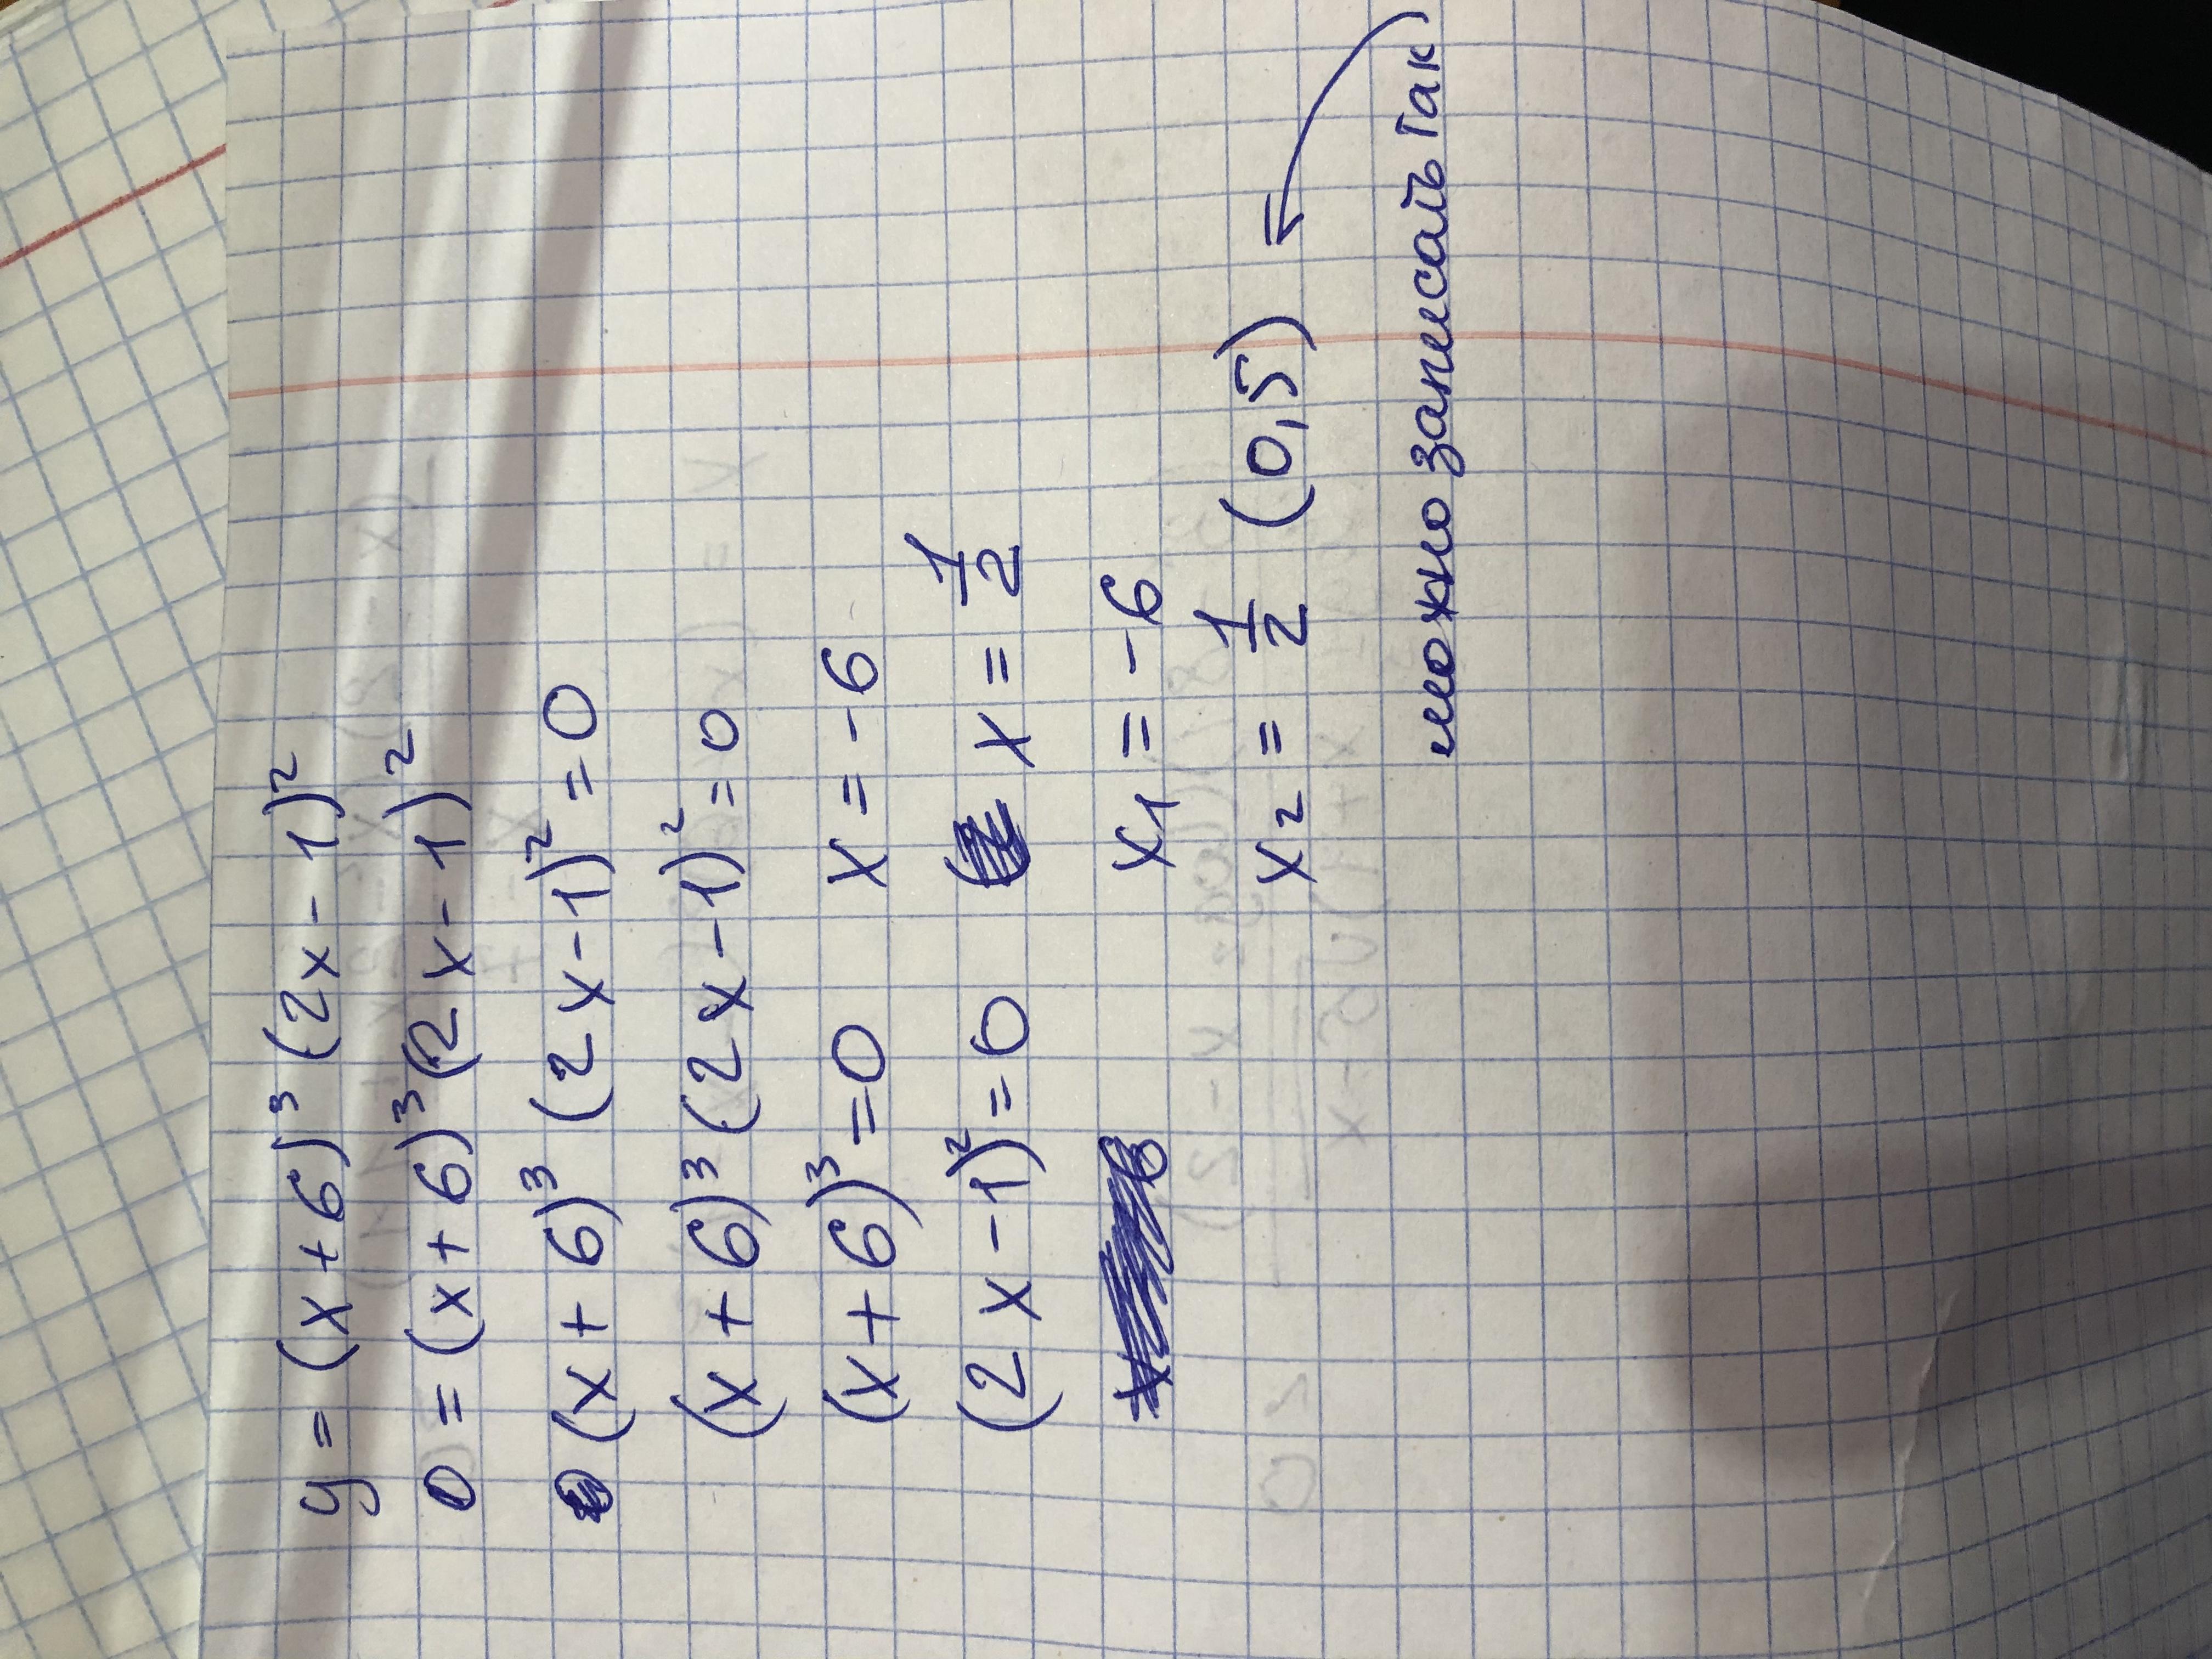 y = (x + 6)³ (2x - 1)²
0 = (x + 6)³ (2x - 1)²
(x + 6)³ (2x - 1)² = 0
(x + 6)³ (2x - 1)² = 0
(x + 6)³ = 0 x = -6
(2x - 1)² = 0 x = 1/2
x₁ = -6
x₂ = 1/2 (0,5)
можно записать так